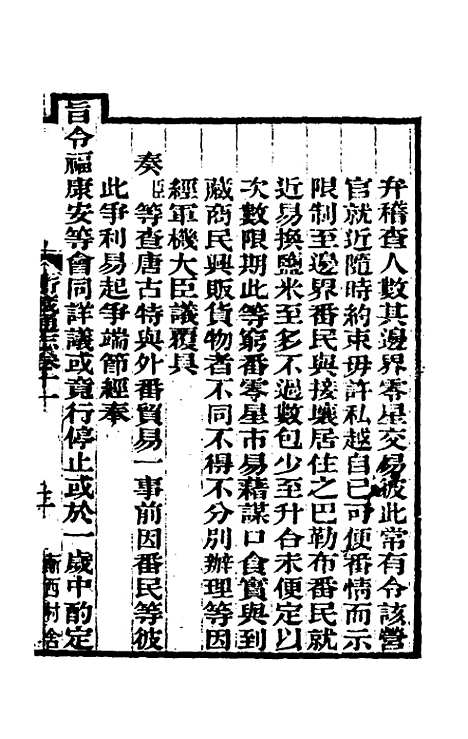 弁稽查人數其邊界零星交易彼此常有令該營
官就近隨時約束毋許私越自己可便番情而示
限制至邊界番民與接壤居住之巴勒布番民就
近易換鹽米至多不過數包少至升合未便定以
次數限期此等窮番零星市易藉謀口食實與到
藏商民興販貨物者不同不得不分別辦理等因
經軍機大臣議覆具
奏臣等查唐古特與外番貿易一事前因番民等彼
此爭利易起爭端節經奉
旨令福康安等會同詳議或竟行停止或於一歲中酌定
衛藏通志卷十一
漸西村舍